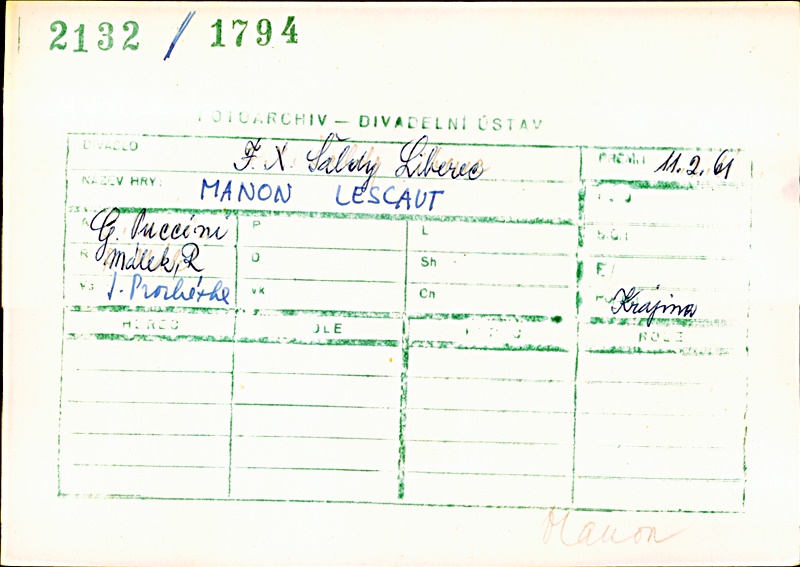 2132 / 1794
FOTOARCHIV – DIVADELNÍ ÚSTAV
DIVADLO F. X. Šaldy Liberec PREMI. 11. 2. 61
NÁZEV HRY: MANON LESCAUT
G. Puccini P L
R Málek, R D Sh
J. Procházka VK Ch Krajina
HEREC ROLE HEREC ROLE
Manon